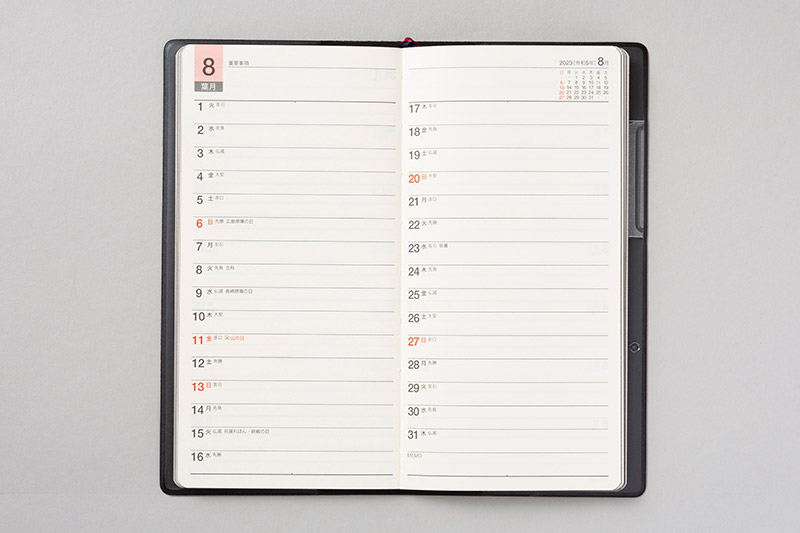 8
葉月
重要事項
1 火 友引
2 水 先負
3 木 仏滅
4 金 大安
5 土 赤口
6 日 先勝 広島原爆の日
7 月 友引
8 火 先負 立秋
9 水 仏滅 長崎原爆の日
10 木 大安
11 金 赤口 山の日
12 土 先勝
13 日 友引
14 月 先負
15 火 仏滅 月遅れぼん・終戦の日
16 水 先勝
2023[令和5年] 8月
日 月 火 水 木 金 土
1 2 3 4 5
6 7 8 9 10 11 12
13 14 15 16 17 18 19
20 21 22 23 24 25 26
27 28 29 30 31
17 木 友引
18 金 先負
19 土 仏滅
20 日 大安
21 月 赤口
22 火 先勝
23 水 友引 処暑
24 木 先負
25 金 仏滅
26 土 大安
27 日 赤口
28 月 先勝
29 火 友引
30 水 先負
31 木 仏滅
MEMO